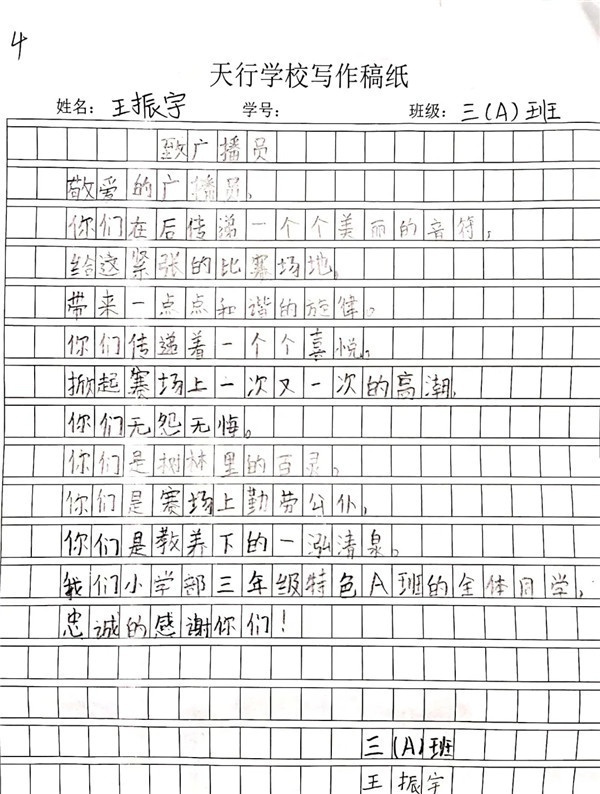 4
天行学校写作稿纸
姓名：王振宇 学号： 班级：三(A)班
致广播员
敬爱的广播员，
你们在后传递一个个美丽的音符，
给这紧张的比赛场地，
带来一点点和谐的旋律。
你们传递着一个个喜悦。
掀起赛场上一次又一次的高潮，
你们无怨无悔。
你们是树林里的百灵，
你们是赛场上勤劳公仆，
你们是教养下的一泓清泉。
我们小学部三年级特色A班的全体同学，
忠诚的感谢你们！
三(A)班
王振宇